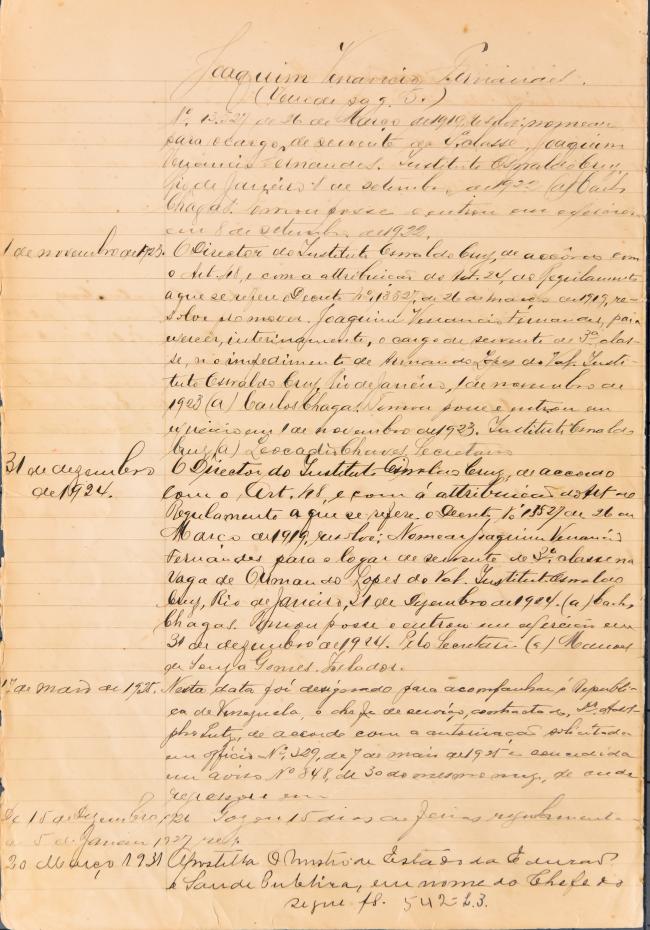 Joaquim Venancio Fernandes.
(Vem de pag. 5.)
Nº 13.527 de 26 de Março de 1919, resolve: nomear
para o cargo de servente de classe, Joaquim
Venancio Fernandes. Instituto Oswaldo Cruz,
Rio de Janeiro 8 de setembro de 1922 (a) Carlos
Chagas. Tomou posse e entrou em exercicio
em 8 de setembro de 1922.
1 de novembro de 1923. O Director do Instituto Oswaldo Cruz, de accôrdo com
o Art. 48, e com a attribuição do Art. 24, do Regulamento
a que se refere o Decreto Nº 13527, de 26 de março de 1919, re-
solve nomear Joaquim Venancio Fernandes, para
exercer, interinamente, o cargo de servente de 3ª clas-
se, no impedimento de Armando Lopes do Val. Insti-
tuto Oswaldo Cruz, Rio de Janeiro, 1 de novembro de
1923 (a) Carlos Chagas. Tomou posse e entrou em
exercicio em 1 de novembro de 1923. Instituto Oswaldo
Cruz (a) Leocadio Chaves, Secretario
31 de dezembro O Director do Instituto Oswaldo Cruz, de accordo
de 1924. com o Art. 48, e com á attribuição do Art no
Regulamento a que se refere o Decreto Nº 13527 de 26 de
Março de 1919, resolve: Nomear Joaquim Venancio
Fernandes para o logar de servente de 3ª classe na
vaga de Armando Lopes do Val. Instituto Oswaldo
Cruz, Rio de Janeiro, 31 de Dezembro de 1924. (a) Carlos
Chagas. Tomou posse e entrou em exercicio em
31 de dezembro de 1924. Pelo Secretario (a) Manoel
de Souza Gomes.
1º de maio de 1925. Nesta data foi designado para acompanhar á Republi-
ca de Venezuela, o chefe de serviço, contractado, Dr. Adol-
pho Lutz, de accordo com a autorisação solicitada
em officio Nº 329, de 7 de maio de 1925 e concedida
em aviso Nº 848, de 30 do mesmo mez, de onde
regressou em
De 15 de Dezembro 926 Gozou 15 dias de ferias regulamentares
a 5 de Janeiro 1927
20 Março 1931 Apostilla O Ministro de Estado da Educação
e Saude Publica, em nome do Chefe do
segue fls. 542-L.3.